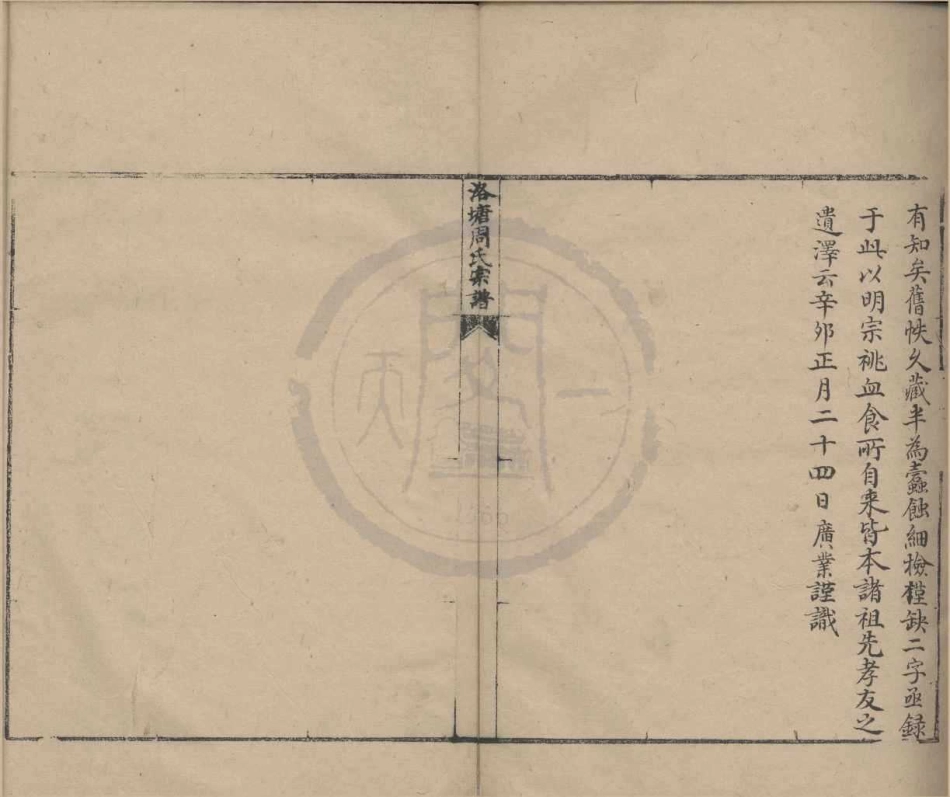 有知矣舊帙久藏半為蠹蝕細檢僅缺二字亟錄
于此以明宗祧血食所自来皆本諸祖先孝友之
遺澤云辛卯正月二十四日廣業謹識
洛塘周氏宗譜